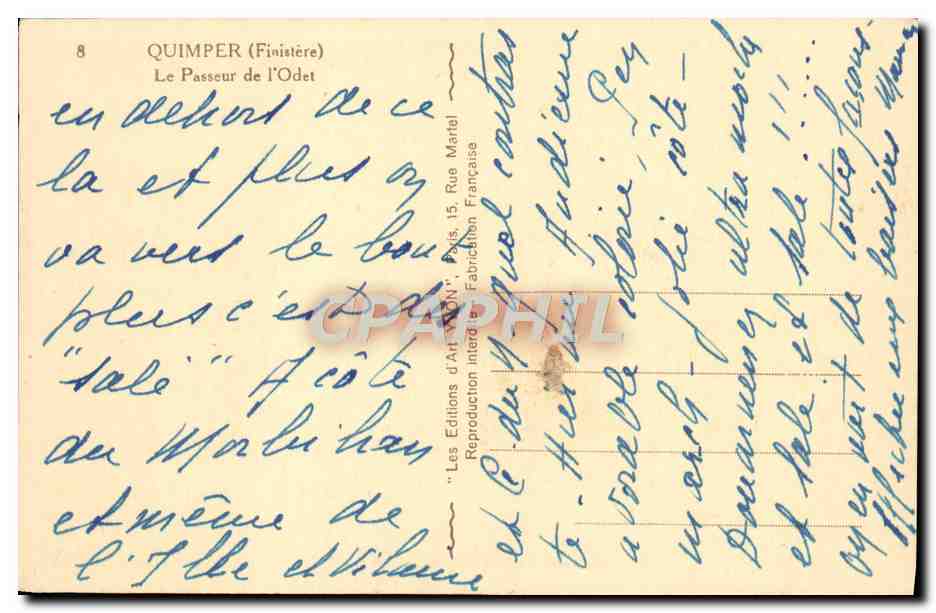 8 QUIMPER (Finistère)
Le Passeur de l'Odet
en dehors de ce
la et plus on
va vers le bout
plus c'est dis
"salé" A côté
du Morbihan
et même de
l'Ille et Vilaine
"Les Editions d'Art YVON", Paris, 15, Rue Martel
Reproduction interdite Fabrication Française
et C. du N. quel contras
te - Hier Audierne
adorable
jolie côte -
Douarnenez ultra moche
et sale et sale !!...
on en vit de toutes façons
baisers
CPAPHIL